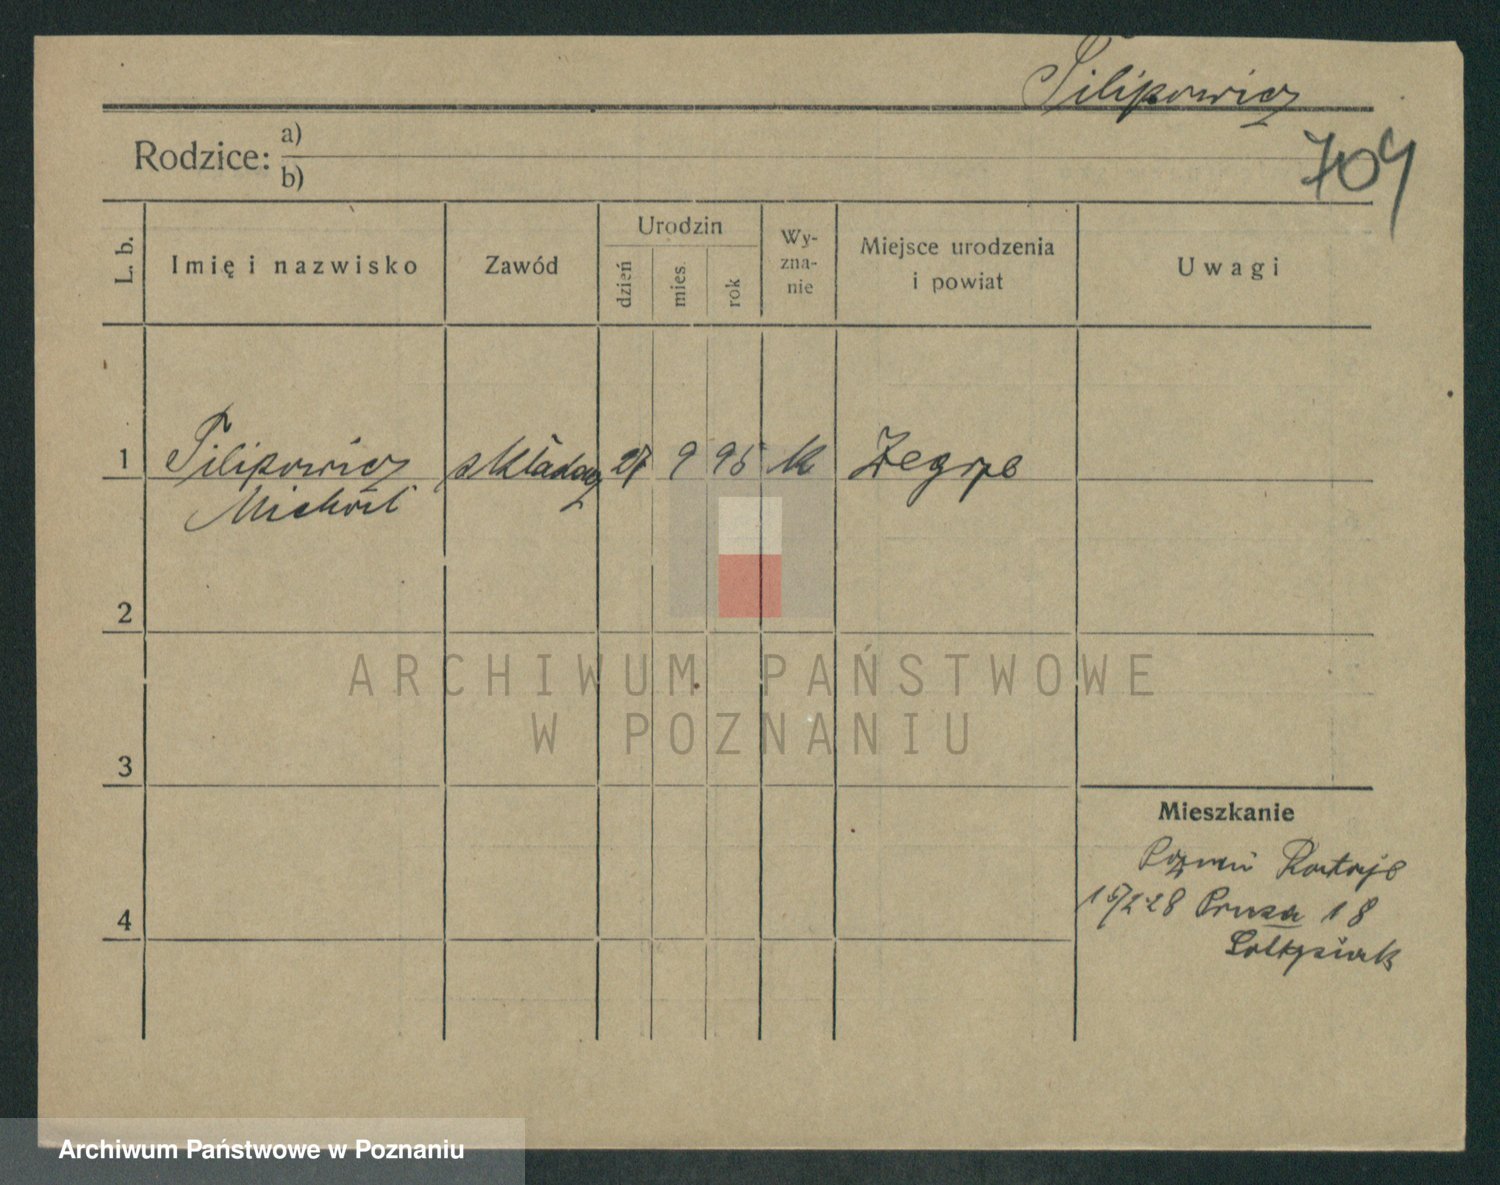 Filipowicz
709
Rodzice: a)
b)
L. b.
Imię i nazwisko
Zawód
Urodzin
dzień
mies.
rok
Wy-
zna-
nie
Miejsce urodzenia
i powiat
Uwagi
1 Filipowicz składowy 27 9 95 K Zegrze
Michał
2
ARCHIWUM PAŃSTWOWE
W POZNANIU
3
Mieszkanie
Poznań Rataje
15/2 28 18
4
Sołtysiak
Archiwum Państwowe w Poznaniu